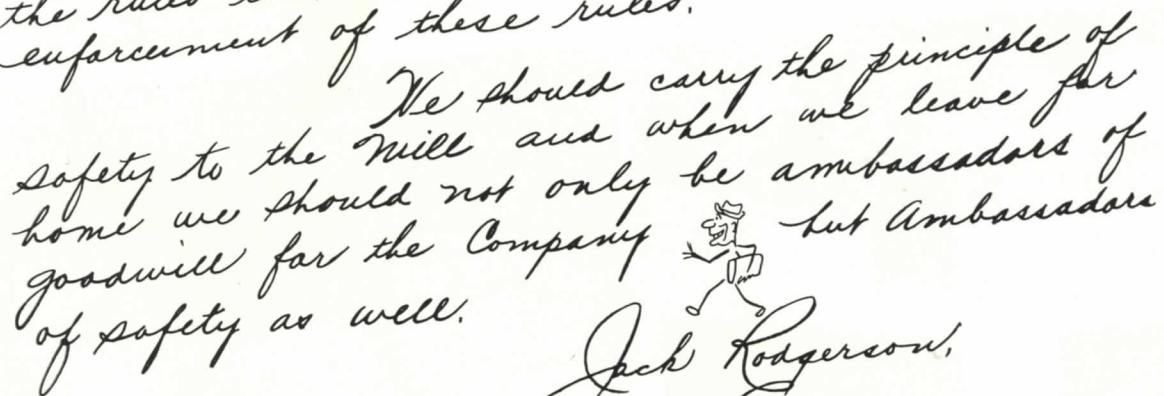 the rules
enforcement of these rules.
We should carry the principle of
safety to the Mill and when we leave for
home we should not only be ambassadors of
goodwill for the Company but Ambassadors
of safety as well.
Jack Rodgerson.